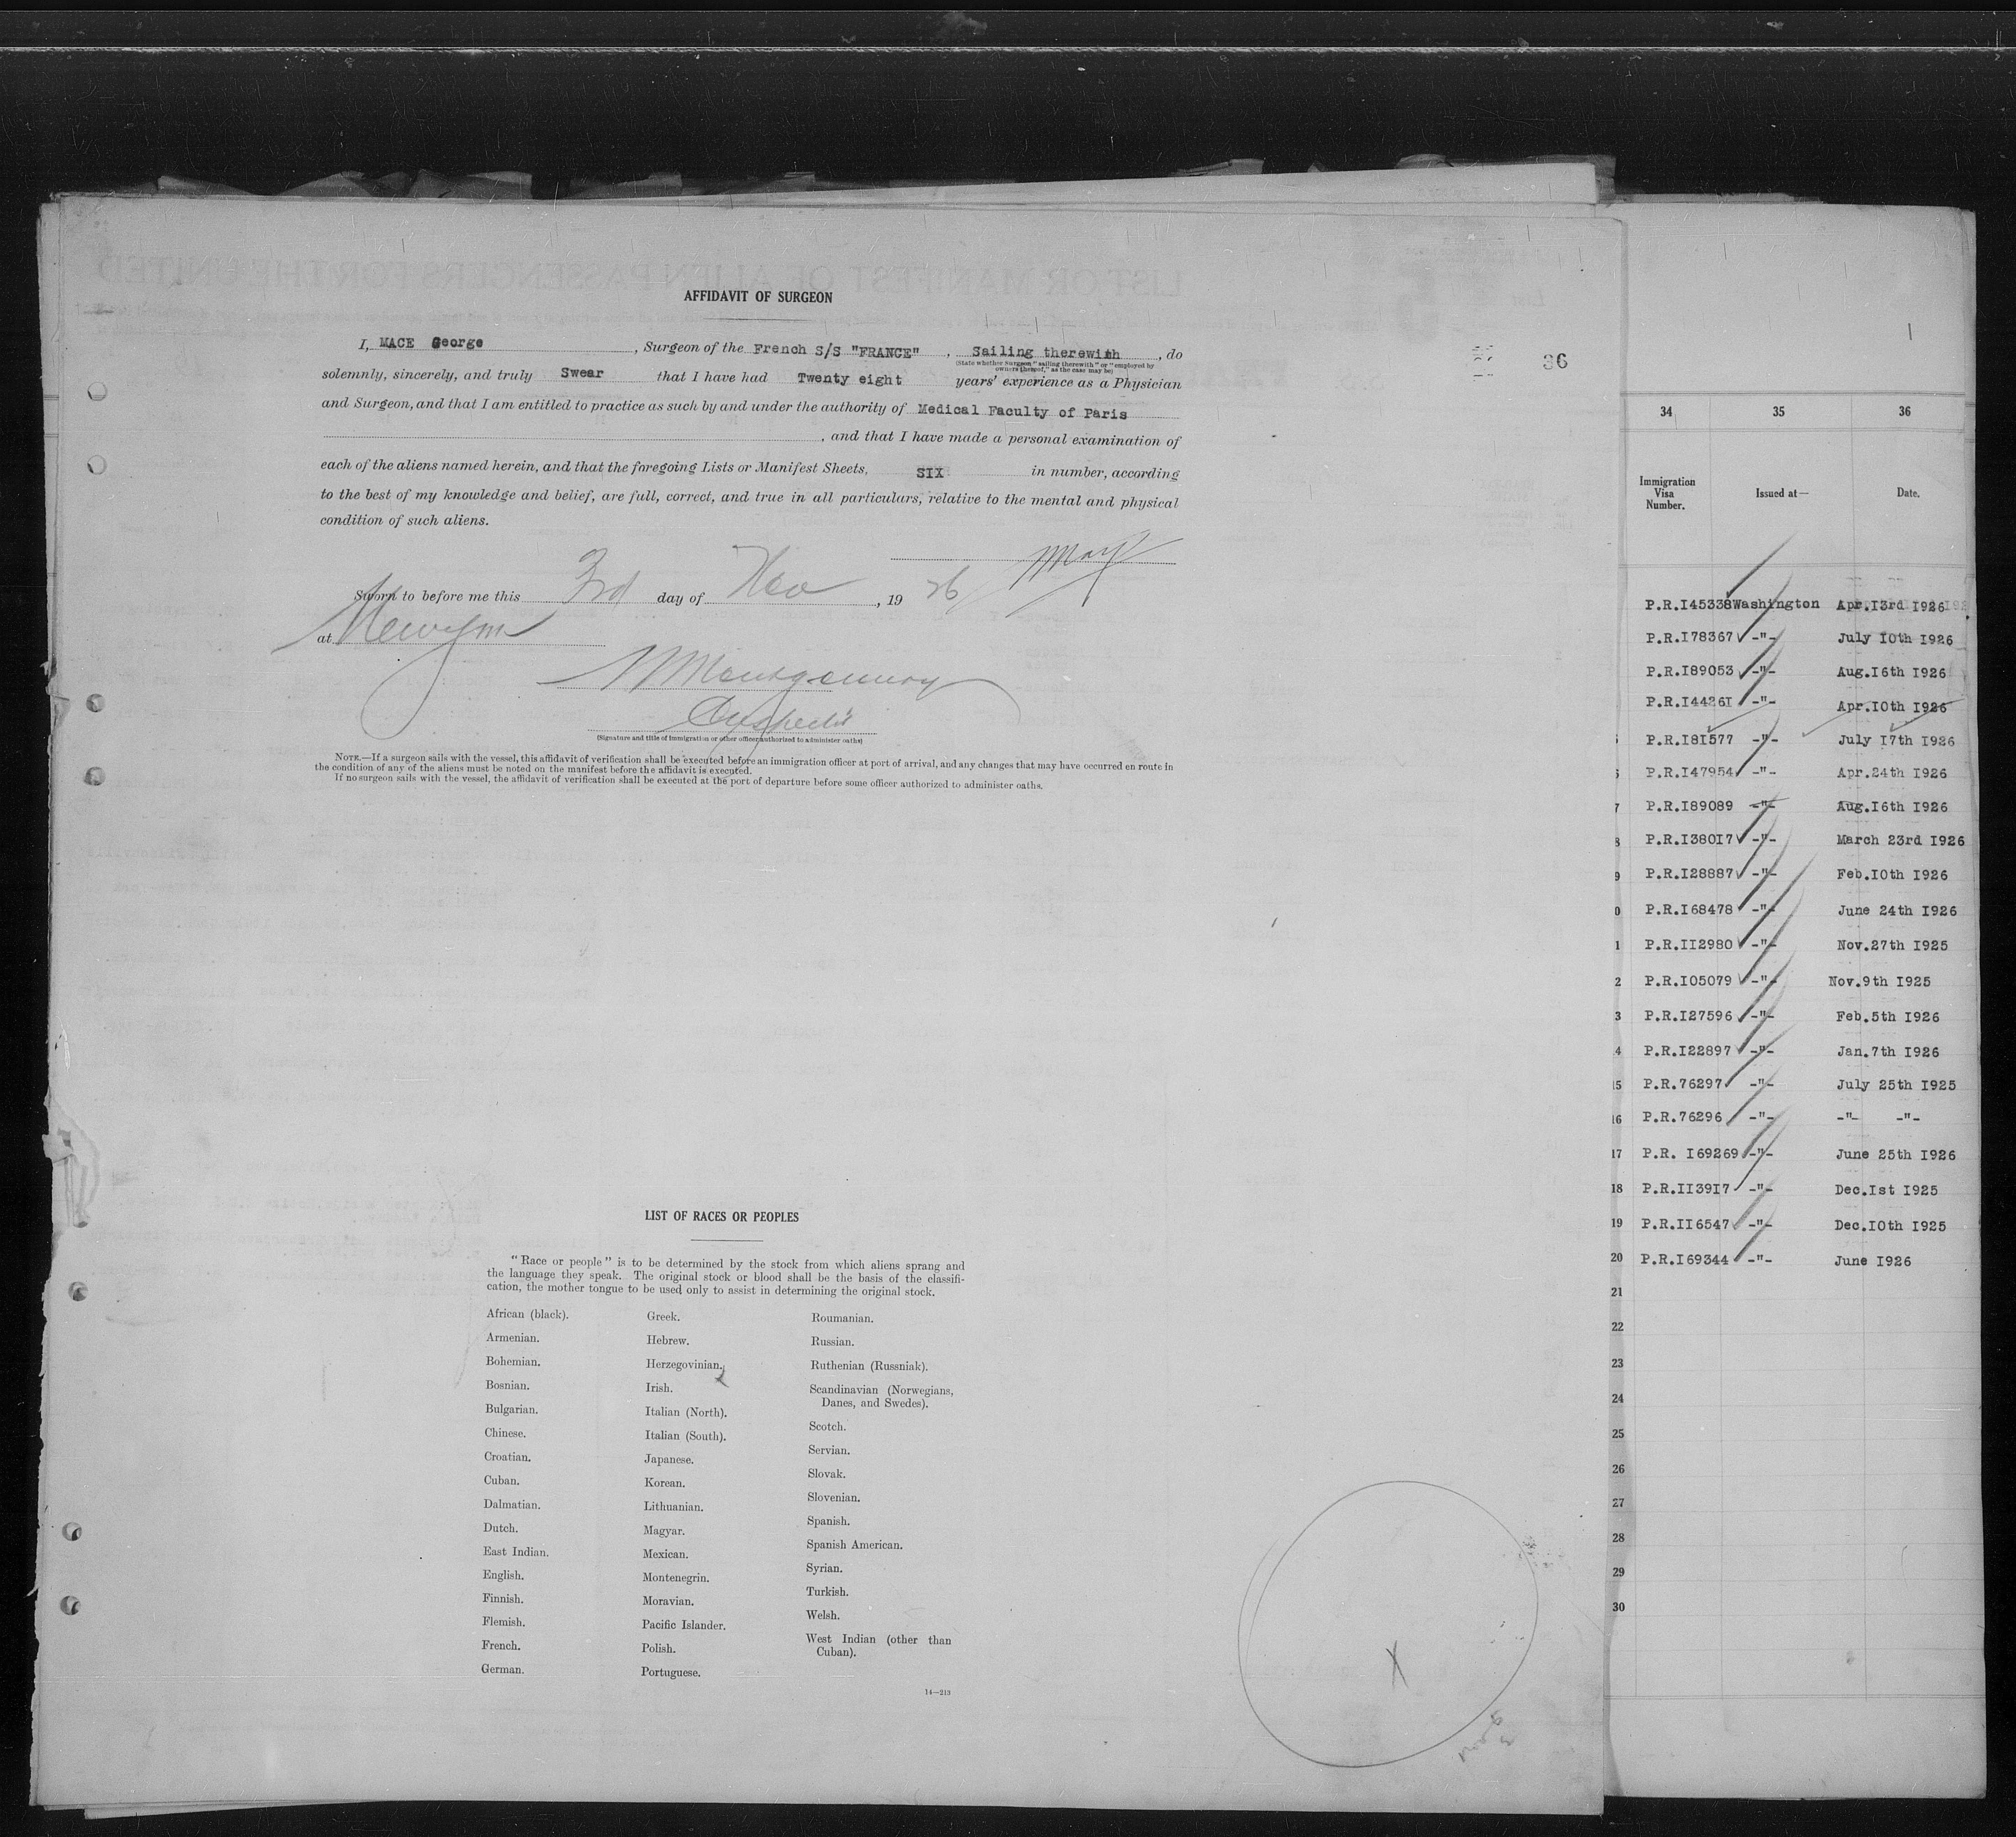 AFFIDAVIT OF SURGEON
I, MACE George, Surgeon of the French S/S "FRANCE", Sailing therewith, do
(State whether Surgeon "sailing therewith" or "employed by
owners thereof," as the case may be)
solemnly, sincerely, and truly Swear that I have had Twenty eight years' experience as a Physician
and Surgeon, and that I am entitled to practice as such by and under the authority of Medical Faculty of Paris
, and that I have made a personal examination of
each of the aliens named herein, and that the foregoing Lists or Manifest Sheets, SIX in number, according
to the best of my knowledge and belief, are full, correct, and true in all particulars, relative to the mental and physical
condition of such aliens.
Sworn to before me this 3rd day of Nov, 1926
at
Montgomery
(Signature and title of immigration or other officer authorized to administer oaths)
NOTE.—If a surgeon sails with the vessel, this affidavit of verification shall be executed before an immigration officer at port of arrival, and any changes that may have occurred en route in
the condition of any of the aliens must be noted on the manifest before the affidavit is executed.
If no surgeon sails with the vessel, the affidavit of verification shall be executed at the port of departure before some officer authorized to administer oaths.
36
LIST OF RACES OR PEOPLES
"Race or people" is to be determined by the stock from which aliens sprang and
the language they speak. The original stock or blood shall be the basis of the classifi-
cation, the mother tongue to be used only to assist in determining the original stock.
African (black).
Armenian.
Bohemian.
Bosnian.
Bulgarian.
Chinese.
Croatian.
Cuban.
Dalmatian.
Dutch.
East Indian.
English.
Finnish.
Flemish.
French.
German.
Greek.
Hebrew.
Herzegovinian.
Irish.
Italian (North).
Italian (South).
Japanese.
Korean.
Lithuanian.
Magyar.
Mexican.
Montenegrin.
Moravian.
Pacific Islander.
Polish.
Portuguese.
Roumanian.
Russian.
Ruthenian (Russniak).
Scandinavian (Norwegians,
Danes, and Swedes).
Scotch.
Servian.
Slovak.
Slovenian.
Spanish.
Spanish American.
Syrian.
Turkish.
Welsh.
West Indian (other than
Cuban).
14—213
X
34 35 36
Immigration
Visa
Number.
Issued at—
Date.
P.R.I45338 Washington Apr.I3rd I926
P.R.I78367 -"- July I0th I926
P.R.I89053 -"- Aug.I6th I926
P.R.I44261 -"- Apr.I0th I926
P.R.I8I577 -"- July I7th I926
P.R.I47954 -"- Apr.24th I926
7 P.R.I89089 -"- Aug.I6th I926
8 P.R.I38OI7 -"- March 23rd I926
9 P.R.I28887 -"- Feb.I0th I926
0 P.R.I68478 -"- June 24th I926
1 P.R.II2980 -"- Nov.27th I925
2 P.R.I05079 -"- Nov.9th I925
3 P.R.I27596 -"- Feb.5th I926
4 P.R.I22897 -"- Jan.7th I926
15 P.R.76297 -"- July 25th I925
16 P.R.76296 -"- -"- -"-
17 P.R. I69269 -"- June 25th I926
18 P.R.II39I7 -"- Dec.Ist I925
19 P.R.II6547 -"- Dec.I0th I925
20 P.R.I69344 -"- June I926
21
22
23
24
25
26
27
28
29
30